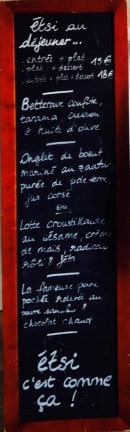 étsi au
déjeuner...
entrée + plat
plat + dessert 15€
entrée + plat + dessert 18€
Betterave confite,
tarama, cresson
& huile d'olive
Onglet de boeuf
mariné au zaatar
purée de pdeterre,
jus corsé
ou
Lotte croustillante
au sésame, crème
de maïs, radicchio
rôti & feta
La fameuse poire
pochée relevée au
poivre &
chocolat chaud
étsi
c'est comme
ça !